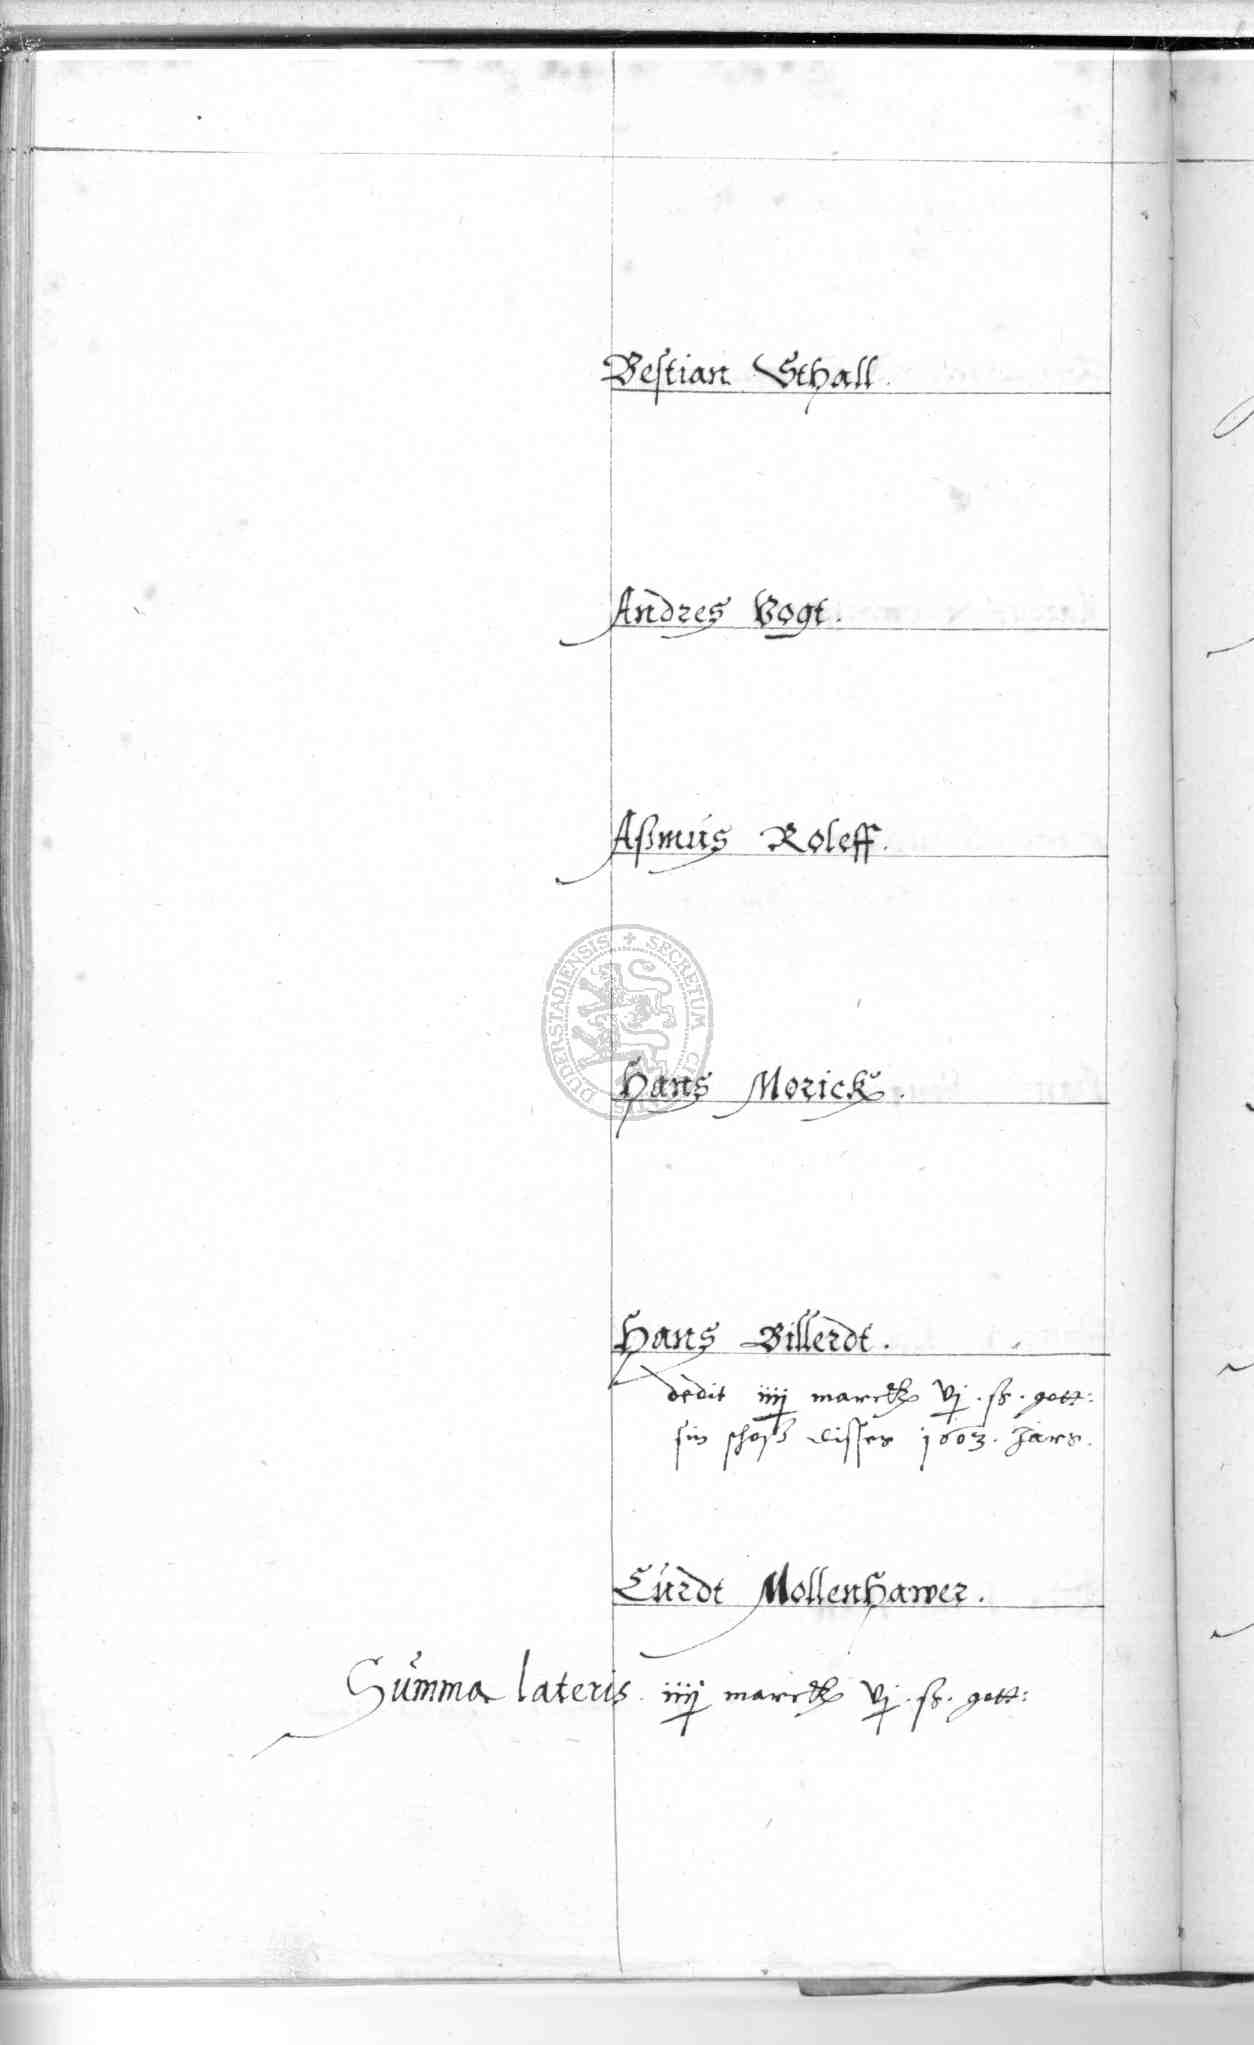 Bestian Sthall.
Andres Vogt.
Aßmus Roleff.
Hans Morick.
Hans Billerdt.
dedit iiij marck vj. ß. gott:
sin schoß disses 1603. Jars.
Curdt Mollenhawer.
Summa lateris. iiij marck vj. ß. gott:
SECRETUM
DUDERSTADIENSIS